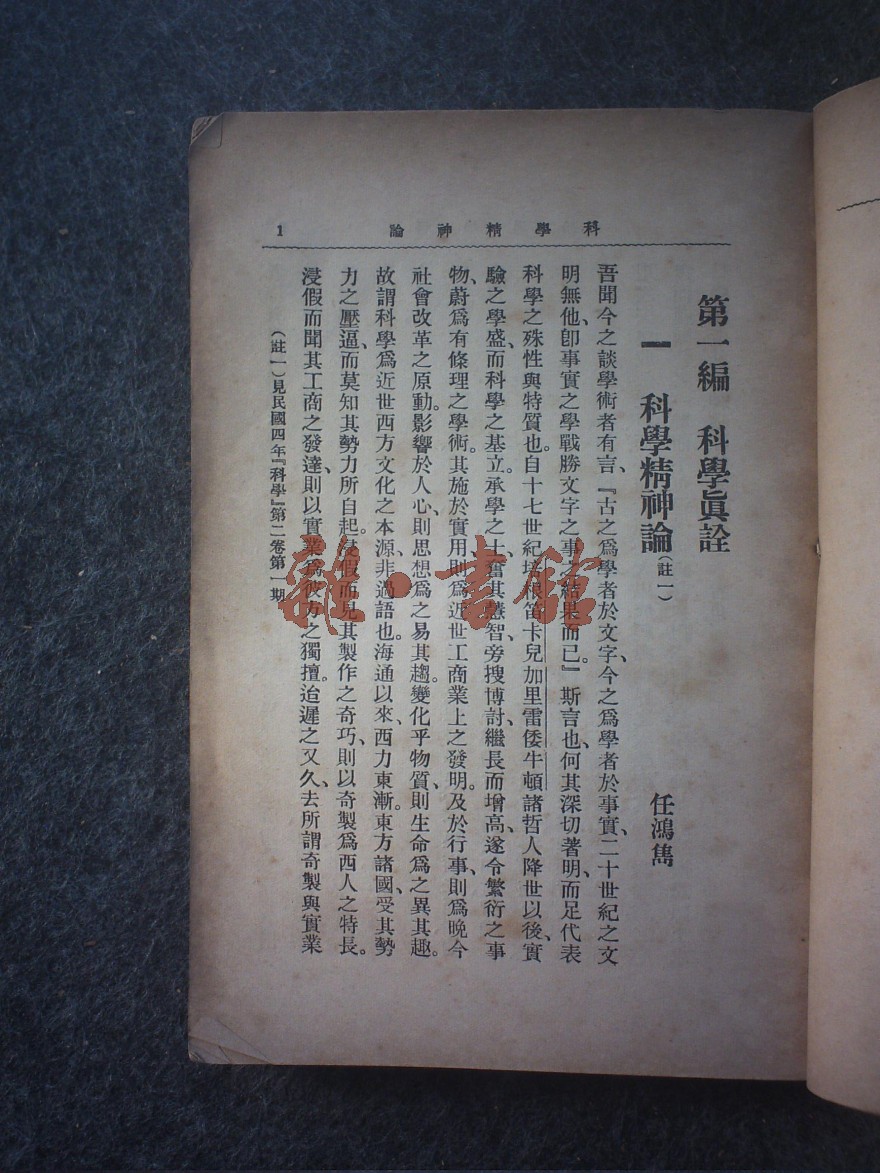 科學精神論 1
第一編 科學眞詮
一 科學精神論(註一)
任鴻雋
吾聞今之談學術者有言、『古之爲學者於文字、今之爲學者於事實、二十世紀之文
明無他、卽事實之學戰勝文字之事之結果而已。』斯言也、何其深切著明、而足代表
科學之殊性與特質也。自十七世紀培根笛卡兒加里雷倭牛頓諸哲人降世以後、實
驗之學盛、而科學之基立。承學之士、奮其慧智、旁搜博討、繼長而增高、遂令繁衍之事
物、蔚爲有條理之學術。其施於實用、則爲近世工商業上之發明。及於行事、則爲晚今
社會改革之原動。影響於人心、則思想爲之易其趨。變化乎物質、則生命爲之異其趣。
故謂科學爲近世西方文化之本源、非過語也。海通以來、西力東漸。東方諸國、受其勢
力之壓逼、而莫知其勢力所自起。浸假而見其製作之奇巧、則以奇製爲西人之特長。
浸假而聞其工商之發達、則以實業爲彼方之獨擅。迨遲之又久、去所謂奇製與實業
(註一)見民國四年『科學』第二卷第一期
雜·書館